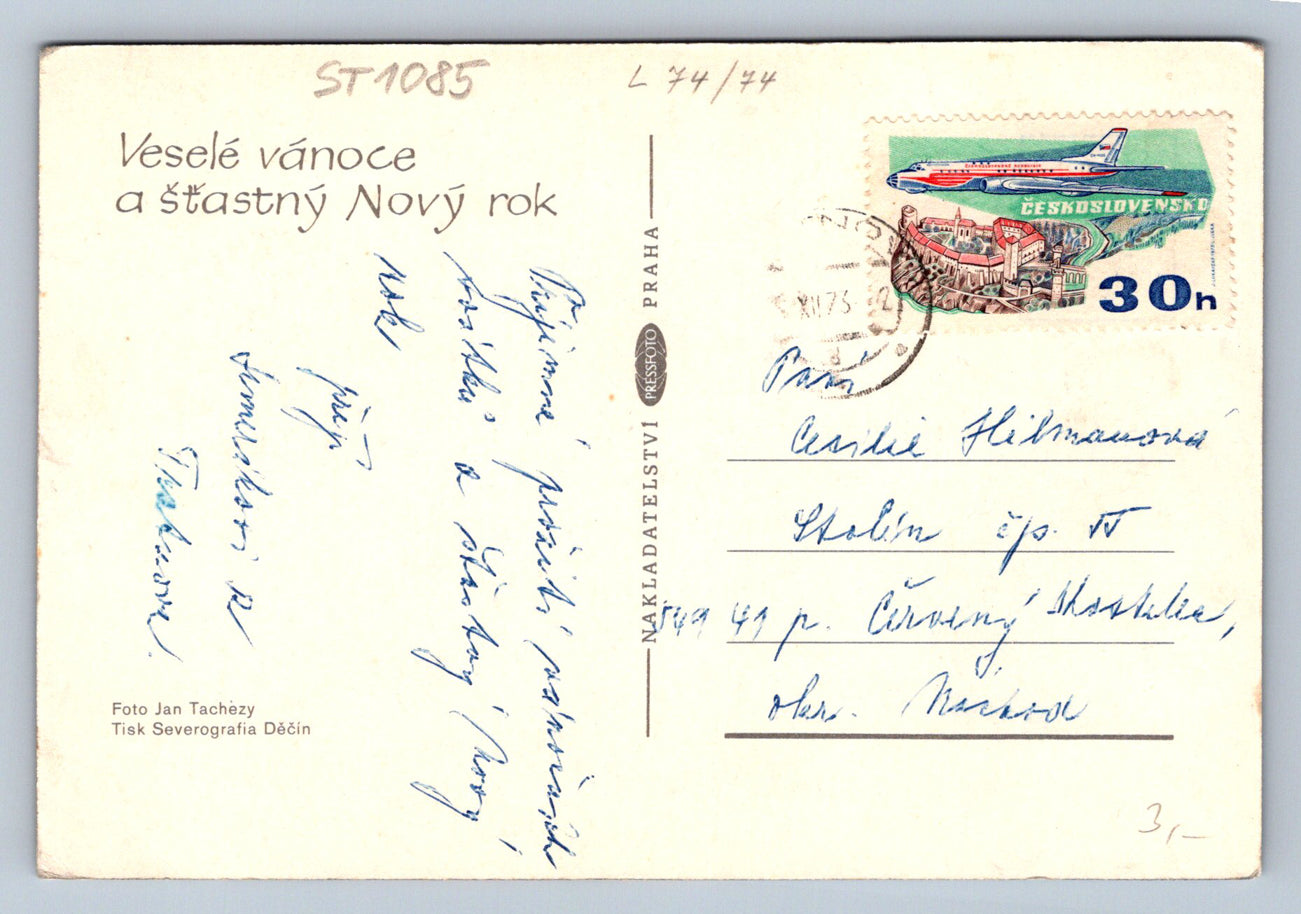 ST1085
L 74/74
Veselé vánoce
a šťastný Nový rok
Příjemné prožití vánočních
svátků a šťastný Nový
rok
přejí
z
Trutnova.
Foto Jan Tachezy
Tisk Severografia Děčín
NAKLADATELSTVÍ PRESSFOTO PRAHA
ČESKOSLOVENSKO
30h
XII.73
Paní
Cecilie Heřmanová
Stolín čp.
549 41 p. Červený Kostelec,
okr. Náchod
3,-